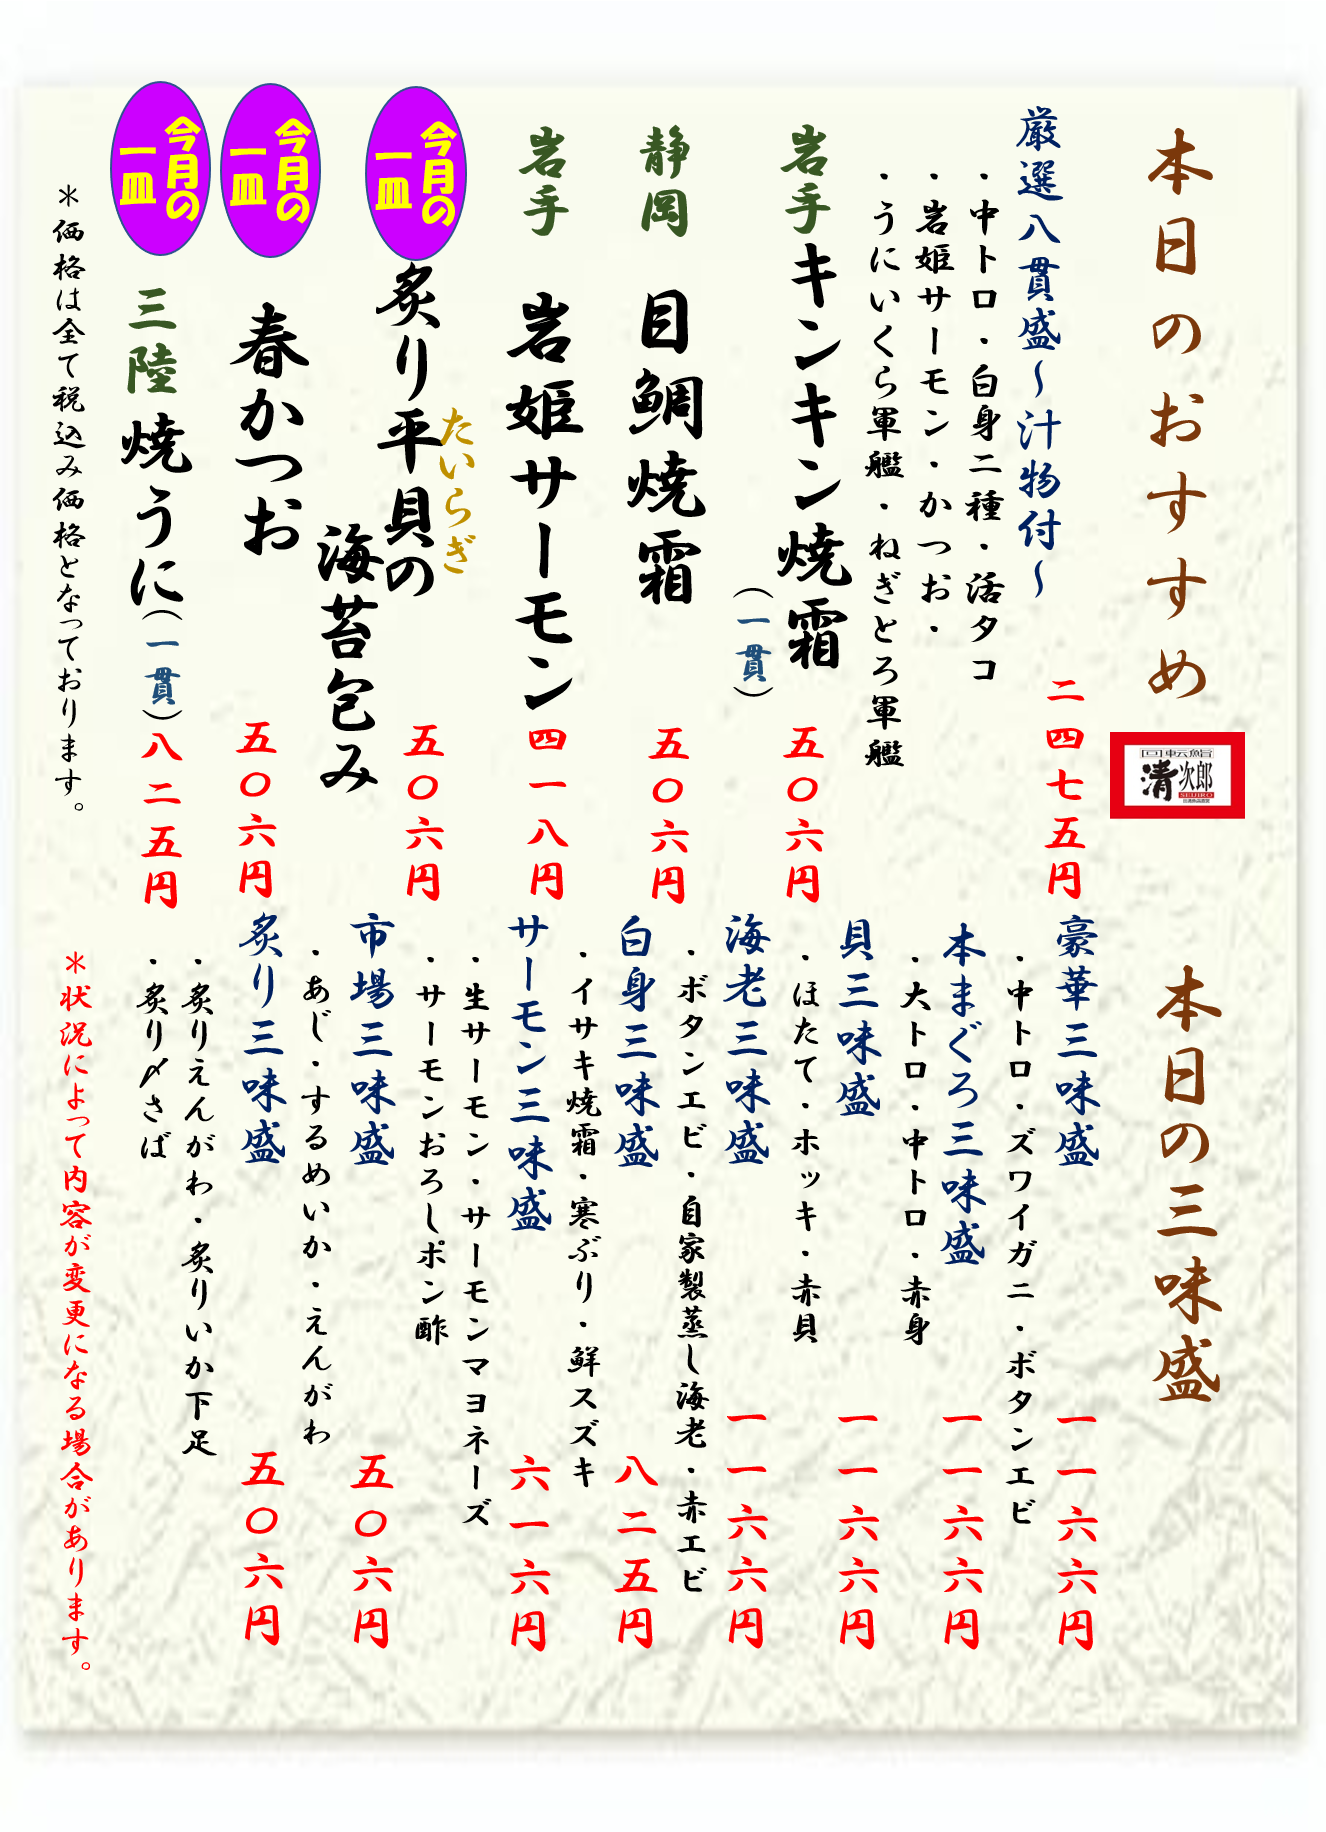 本日のおすすめ
回転鮨
清次郎
SEIJIRO
厳選八貫盛～汁物付～
二四七五円
・中トロ・白身二種・活タコ
・岩姫サーモン・かつお・
・うにいくら軍艦・ねぎとろ軍艦
岩手キンキン焼霜
（一貫）
五〇六円
静岡 目鯛焼霜
五〇六円
岩手 岩姫サーモン
四一八円
今月の
一皿
たいらぎ
炙り平貝の
海苔包み
五〇六円
今月の
一皿
春かつお
五〇六円
今月の
一皿
三陸 焼うに（一貫）
八二五円
＊価格は全て税込み価格となっております。
本日の三味盛
豪華三味盛
一一六六円
・中トロ・ズワイガニ・ボタンエビ
本まぐろ三味盛
一一六六円
・大トロ・中トロ・赤身
貝三味盛
一一六六円
・ほたて・ホッキ・赤貝
海老三味盛
一一六六円
・ボタンエビ・自家製蒸し海老・赤エビ
白身三味盛
八二五円
・イサキ焼霜・寒ぶり・鮮スズキ
サーモン三味盛
六一六円
・生サーモン・サーモンマヨネーズ
・サーモンおろしポン酢
市場三味盛
五〇六円
・あじ・するめいか・えんがわ
炙り三味盛
五〇六円
・炙りえんがわ・炙りいか下足
・炙り〆さば
＊状況によって内容が変更になる場合があります。